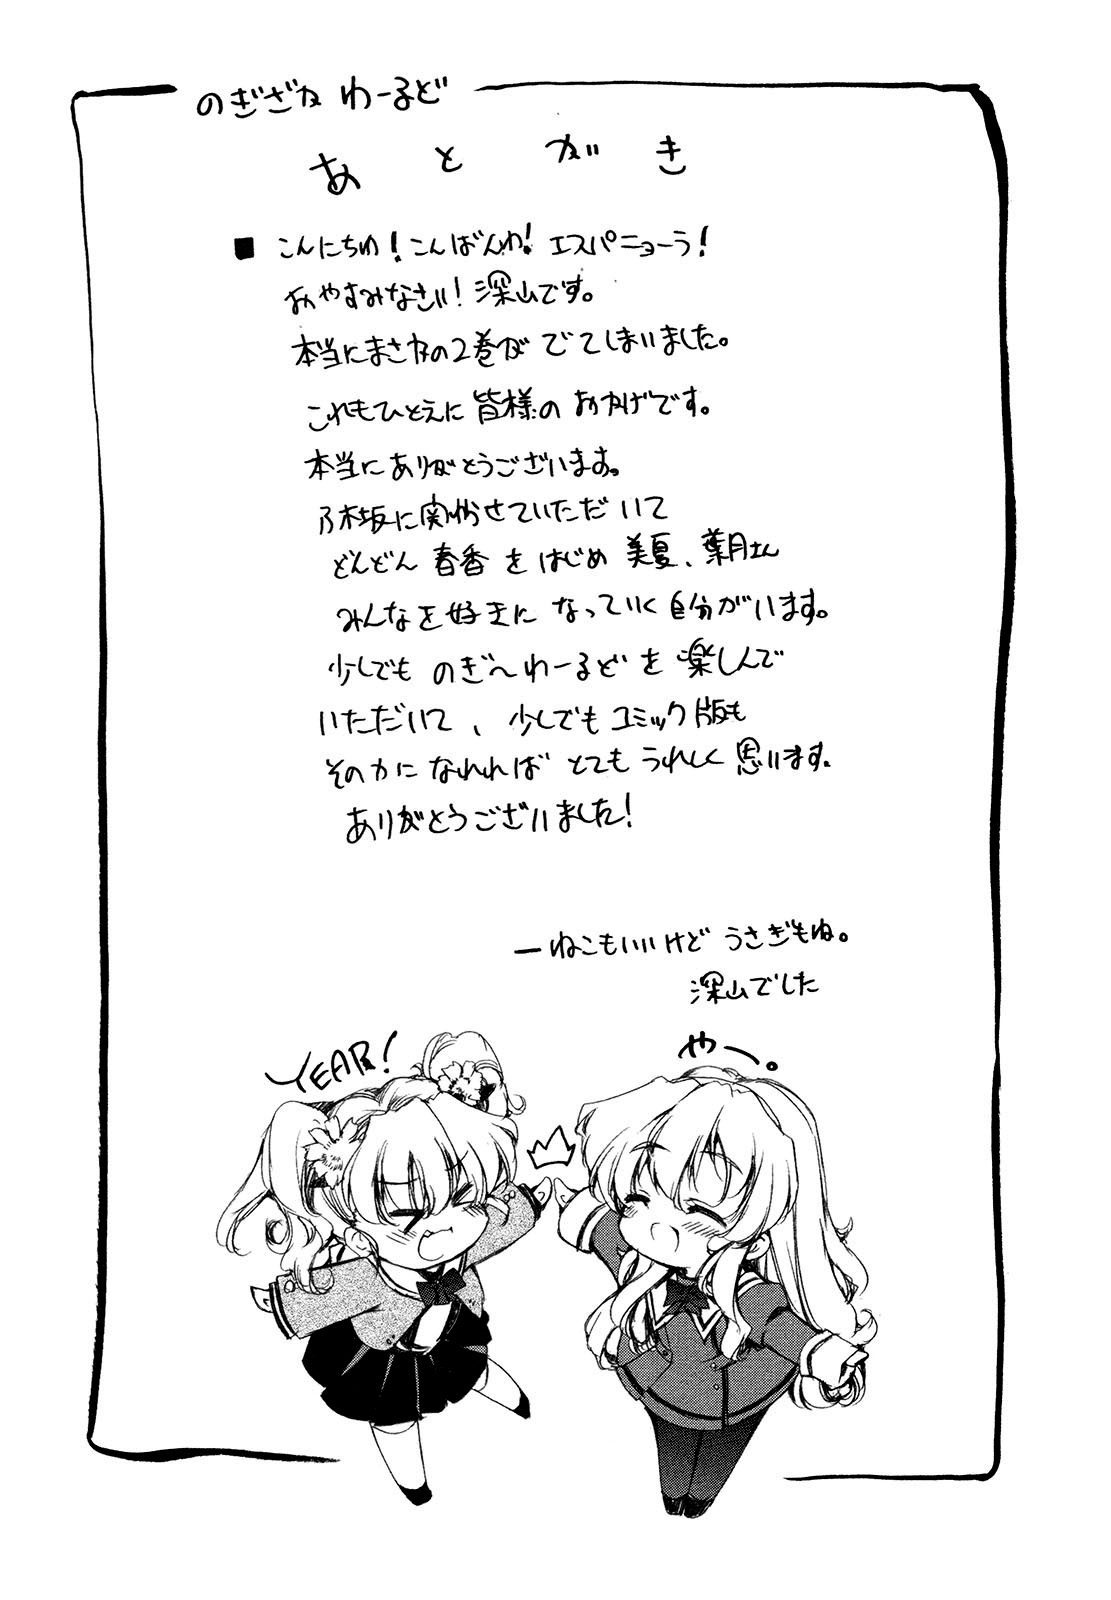 のぎざか わーるど
あとがき
■ こんにちわ！こんばんわ！エスパニョーラ！
おやすみなさい！深山です。
本当にまさかの2巻が でてしまいました。
これもひとえに皆様の おかげです。
本当にありがとうございます。
乃木坂に関わせていただいて
どんどん 春香 を はじめ 美夏、葉月さん
みんなを好きに なっていく自分がいます。
少しでも のぎ〜わーるど を 楽しんで
いただいて、少しでもコミック版も
そのカに なれれば とても うれしく 思います。
ありがとうございました！
ーねこもいいけど うさぎもね。
深山でした
YEAR!
やー。